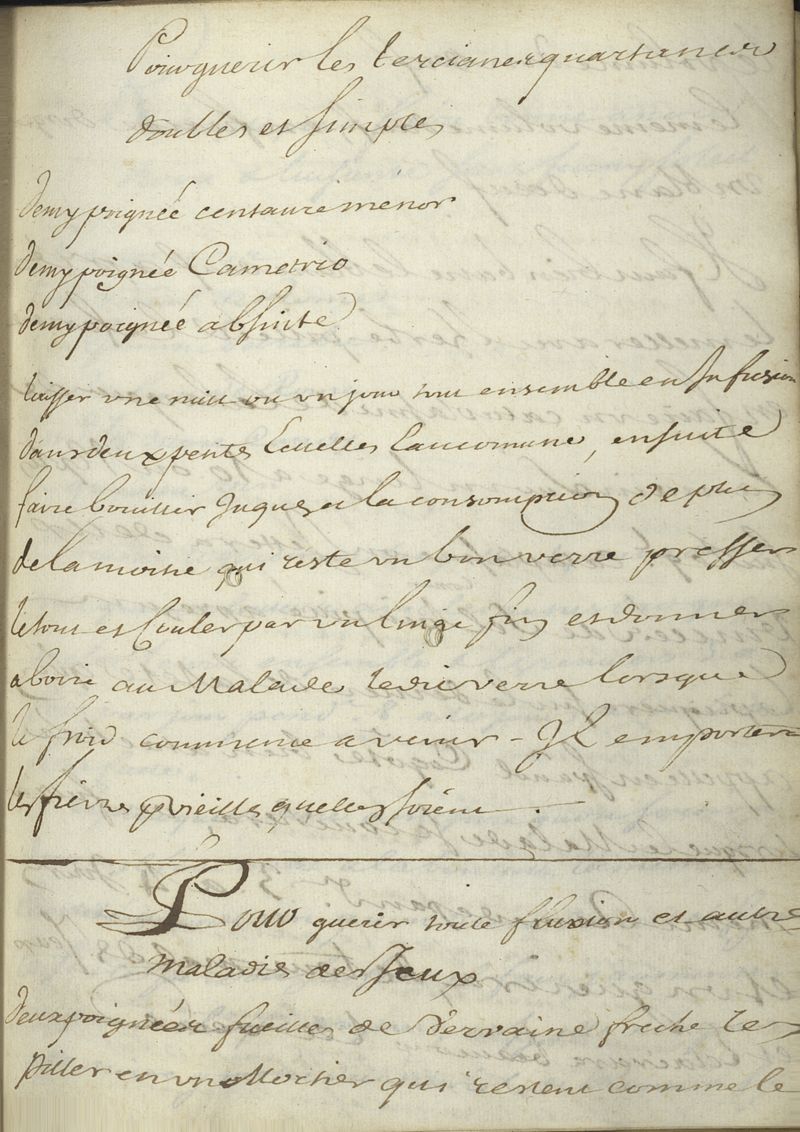 Pour guerir les tercianes quartanes
doubles et simples
demy poignée centaure ménor
demy poignée Cametrio
demy poignée absinte
laisser une nuit ou un jour tout ensemble en Infusion
dans deux petites Ecuelles Eau comune, ensuite
faire bouillir Juques a la consomption de plus
de la moitie qui reste un bon verre presser
le tout et Couler par un linge fin et donner
a boire au Malade ledit verre lorsque
le froid commence a venir - Il emportera
les fievres vieilles quelles soient.
Pour guerir toute fluxion et autre
Maladies des Yeux
deux poignées fueilles de Verraine freche les
piller en un Mortier qui restent comme le